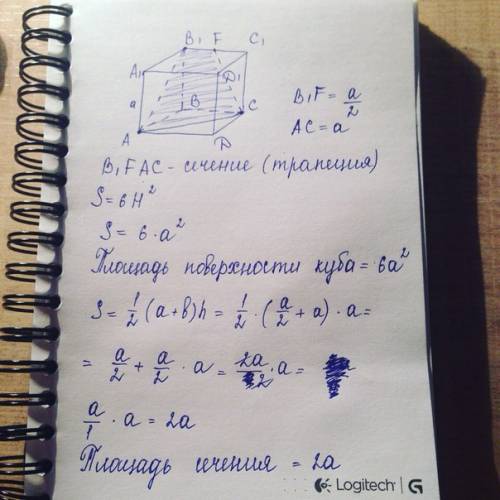 B₁ F C₁
A₁ D₁
a B C
A D
B₁F = a/2
AC = a
B₁FAC - сечение (трапеция)
S = 6H²
S = 6·a²
Площадь поверхности куба = 6a²
S = 1/2 (a+b)h = 1/2 · (a/2 + a) · a =
= a/2 + a/2 · a = 2a/2 · a =
a/1 · a = 2a
Площадь сечения = 2a
Logitech | G